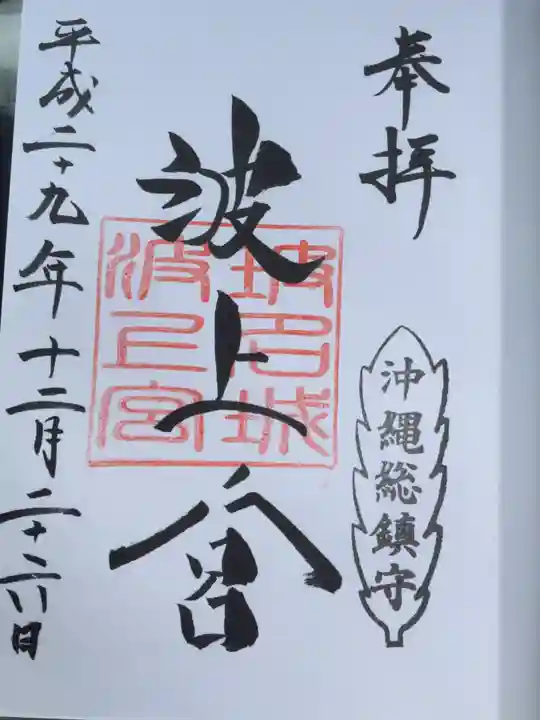 奉拝
沖縄総鎮守
波上宮
坡名城
波上宮
平成二十九年十二月二十六日